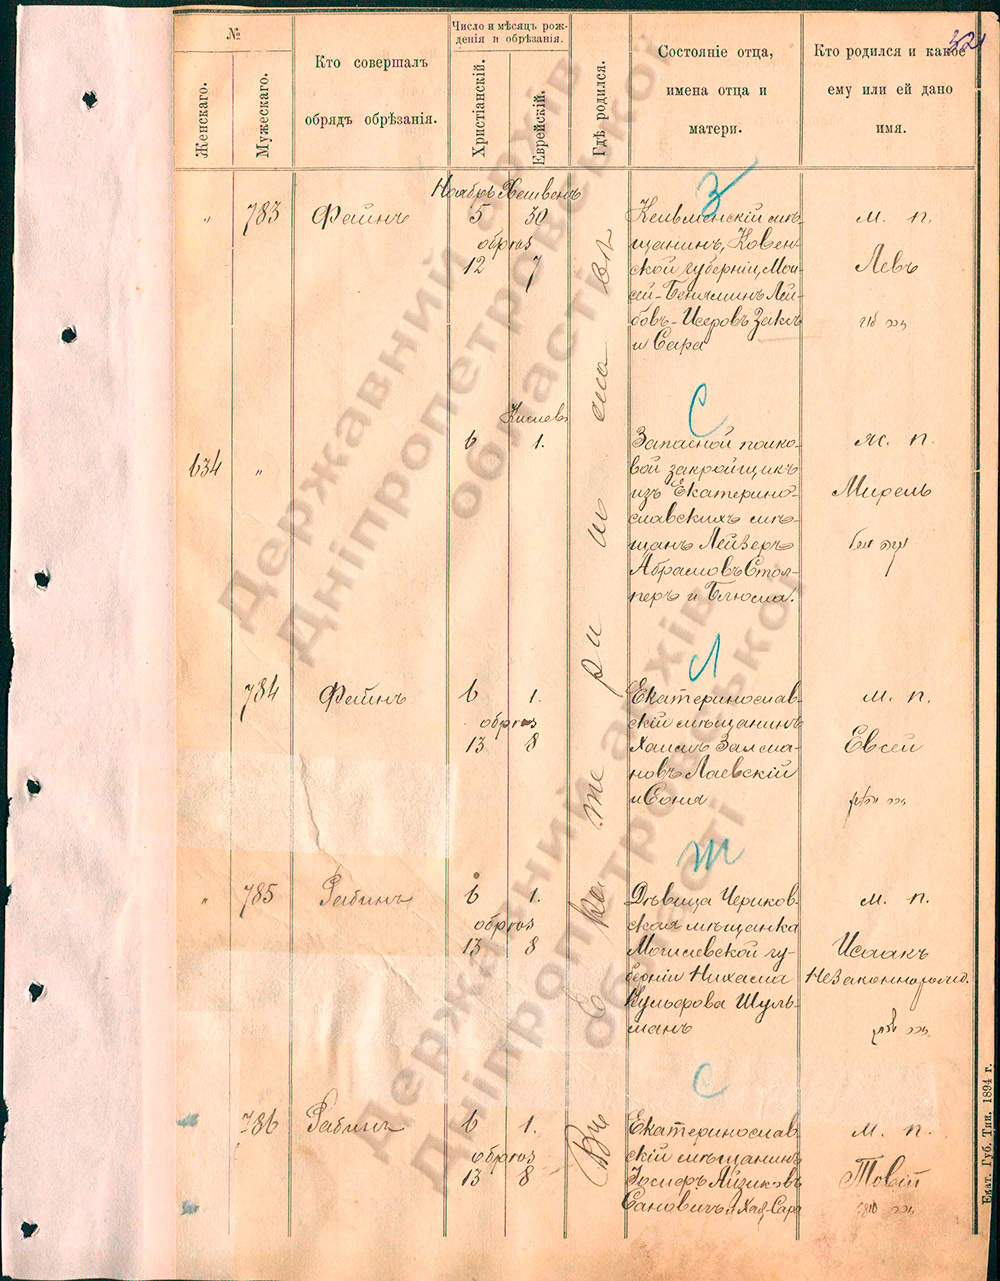 321
№
Женскаго.
Мужескаго.
Кто совершалъ
обрядъ обрѣзанія.
Число и мѣсяцъ рож-
денія и обрѣзанія.
Христіанскій.
Еврейскій.
Гдѣ родился.
Состояніе отца,
имена отца и
матери.
Кто родился и какое
ему или ей дано
имя.
Ноябрь Хешвенъ
З
" 783 Фаинъ 5 30
обрѣз
12 7
Кельменскій мѣ-
щанинъ, Ковен-
ской губерніи, Мои-
сей-Беніяминъ Лей-
бовъ-Исеровъ Заксъ
и Сара
м. п.
Левъ
זכר
Кислевъ
С
634 " 6 1.
Запасной полко-
вой закройщикъ
изъ Екатерино-
славскихъ мѣ-
щанъ Лейзеръ
Абрамовъ Стол-
перъ и Блюма.
ж. п.
Мирель
נקבה
Л
784 Фаинъ 6 1.
обрѣз
13 8
Екатеринослав-
скій мѣщанинъ
Хаимъ Залма-
новъ Лаевскій
и Соня
м. п.
Евсей
זכר
Ш
" 785 Рабинъ 6 1.
обрѣз
13 8
Дѣвица Чериков-
ская мѣщанка
Могилевской гу-
берніи Нихама
Кульфова Шуль-
манъ
м. п.
Исаакъ
незаконнорожд.
זכר יצחק
С
786 Рабинъ 6 1.
обрѣз
13 8
Екатеринослав
скій мѣщанинъ
Іосифъ Айзиковъ
Сановичъ и Хая-Сара
м. п.
Товій
זכר
Въ Екатеринославѣ
Екат. Губ. Тип. 1894 г.
Державний архів
Дніпропетровської
області
Державний архів
Дніпропетровської
області